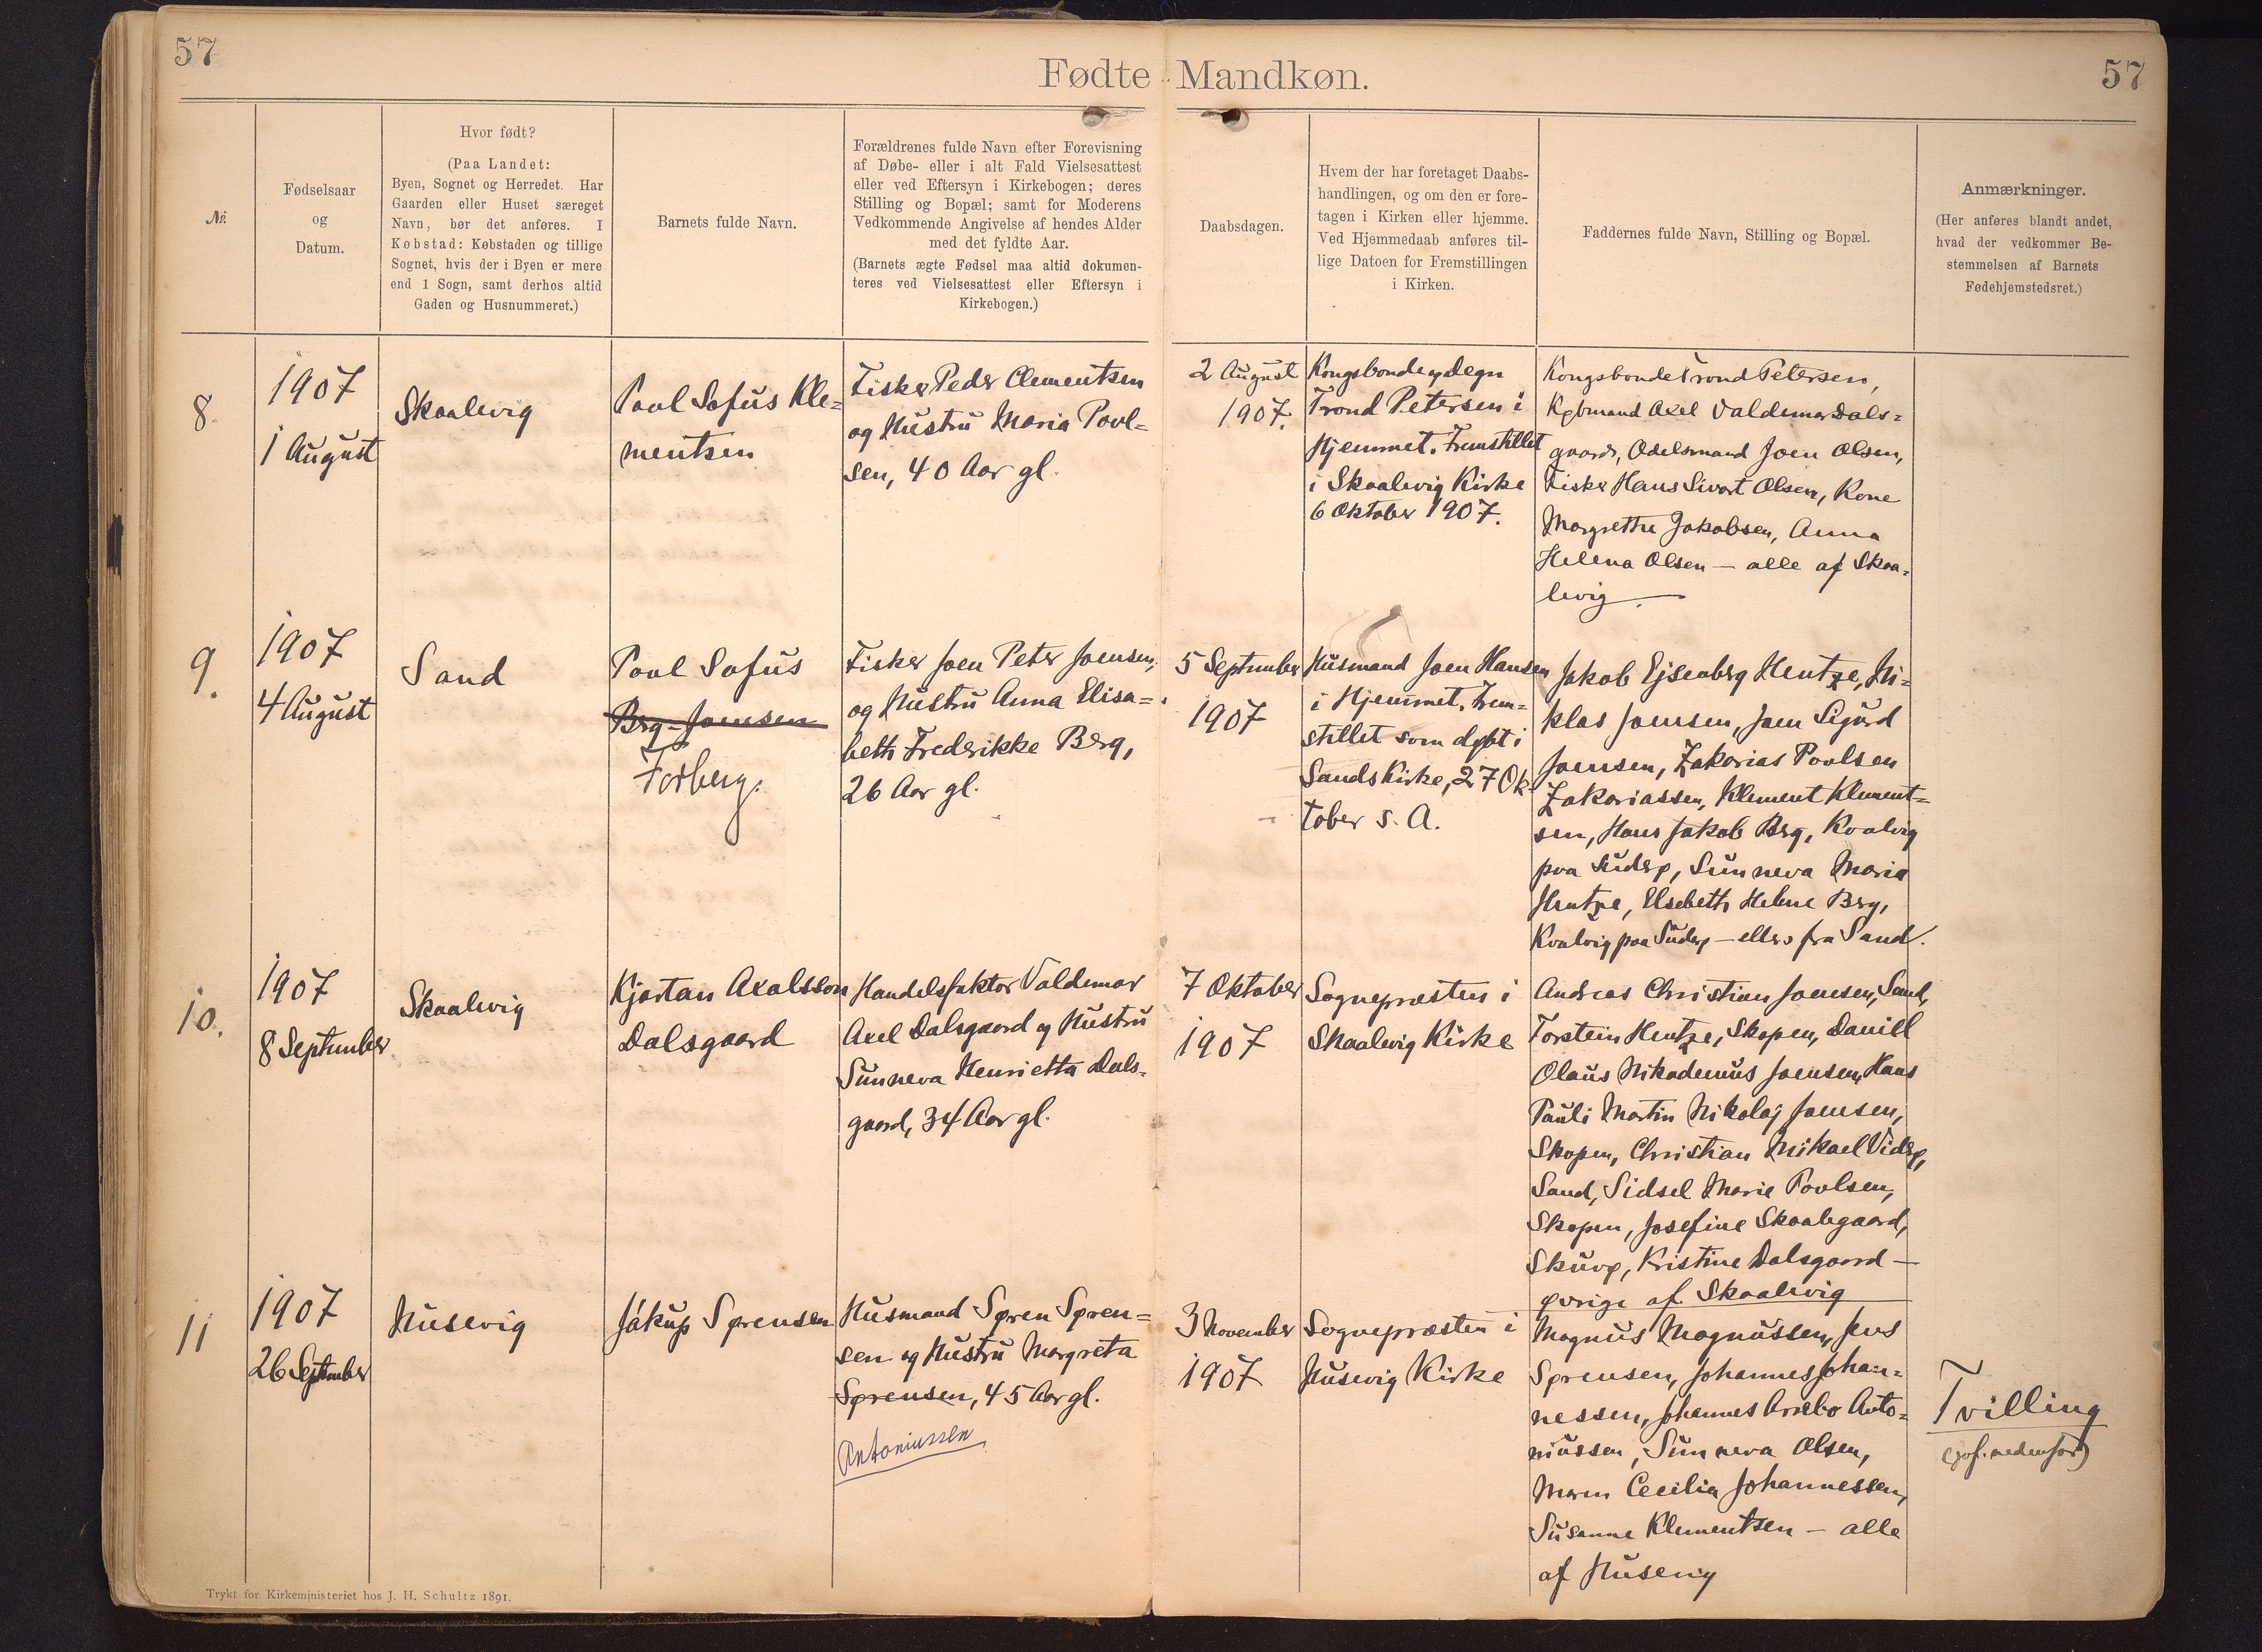 57
Fødte Mandkøn.
57
№
Fødselsaar
og
Datum.
Hvor født?
(Paa Landet:
Byen, Sognet og Herredet. Har
Gaarden eller Huset særeget
Navn, bør det anføres. I
Købstad: Købstaden og tillige
Sognet, hvis der i Byen er mere
end 1 Sogn, samt derhos altid
Gaden og Husnummeret.)
Barnets fulde Navn.
Forældrenes fulde Navn efter Forevisning
af Døbe- eller i alt Fald Vielsesattest
eller ved Eftersyn i Kirkebogen; deres
Stilling og Bopæl; samt for Moderens
Vedkommende Angivelse af hendes Alder
med det fyldte Aar.
(Barnets ægte Fødsel maa altid dokumen-
teres ved Vielsesattest eller Eftersyn i
Kirkebogen.)
Daabsdagen.
Hvem der har foretaget Daabs-
handlingen, og om den er fore-
tagen i Kirken eller hjemme.
Ved Hjemmedaab anføres til-
lige Datoen for Fremstillingen
i Kirken.
Faddernes fulde Navn, Stilling og Bopæl.
Anmærkninger.
(Her anføres blandt andet,
hvad der vedkommer Be-
stemmelsen af Barnets
Fødehjemstedsret.)
8.
1907
1 August
Skaalevig
Povl Sofus Kle=
mentsen
Fisker Peder Clementsen
og Hustru Maria Povl=
sen, 40 Aar gl.
2 August
1907.
Kongsbonde og Degn
Trond Petersen i
Hjemmet. Fremstillet
i Skaalevig Kirke
6 Oktober 1907.
Kongsbonde Trond Petersen,
Købmand Axel Valdemar Dals=
gaard, Odelsmand Joen Olsen,
Fisker Hans Sivert Olsen, Kone
Margrethe Jakobsen, Anna
Helena Olsen — alle af Skaa=
levig.
9.
1907
4 August
Sand
Poul Sofus
Berg-Joensen
Forberg.
Fisker Joen Peter Joensen
og Hustru Anna Elisa=
beth Frederikke Berg,
26 Aar gl.
5 September
1907
Husmand Joen Hansen
i Hjemmet. Frem=
stillet som døbt i
Sands Kirke, 27 Ok=
tober s. A.
Jakob Ejsenberg Hentze, Ni=
klas Joensen, Joen Sigurd
Joensen, Zakarias Poulsen
Zakariassen, Klement Klement=
sen, Hans Jakob Berg, Kvalvig
paa Suderø, Sunneva Maria
Hentze, Elsebeth Helene Berg,
Kvalvig paa Suderø — ellers fra Sand.
10.
1907
8 September
Skaalevig
Kjartan Axalsson
Dalsgaard
Handelsfaktor Valdemar
Axel Dalsgaard og Hustru
Sunneva Henrietta Dals=
gaard, 34 Aar gl.
7 Oktober
1907
Sognepræsten i
Skaalevig Kirke
Andreas Christian Joensen, Sand,
Torstein Hentze, Skopen, Daniel
Olaus Nikodemus Joensen, Hans
Pauli Martin Nikolaj Joensen,
Skopen, Christian Mikael Viderø,
Sand, Sidsel Marie Poulsen,
Skopen, Josefine Skaalegaard,
Skuvø, Kristine Dalsgaard —
øvrige af Skaalevig
11
1907
26 September
Husevig
Jákup Sørensen
Husmand Søren Søren=
sen og Hustru Margreta
Sørensen, 45 Aar gl.
Antoniussen
3 November
1907
Sognepræsten i
Husevig Kirke
Magnus Magnussen, Jens
Sørensen, Johannes Johan=
nessen, Johannes Arrebo Anto=
niussen, Sunneva Olsen,
Maren Cecilia Johannessen,
Susanne Klementsen — alle
af Husevig
Tvilling
(jvf. nedenfor)
Trykt for Kirkeministeriet hos J. H. Schultz 1891.